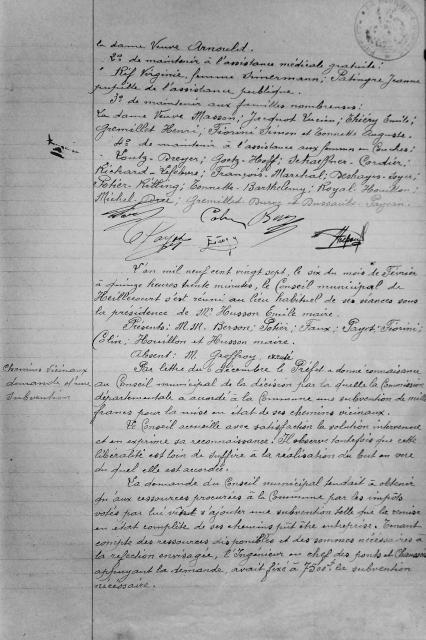 la dame Veuve Arnould.
2º de maintenir à l'assistance médicale gratuite:
Réf Virginie, femme Zimermann; Patingre Jeanne
pupille de l'assistance publique.
3º de maintenir aux familles nombreuses:
La dame Veuve Masson; Jacquot Lucien; Thiéry Emile;
Grémillet Henri; Fiorini Simon et Tonnette Auguste.
4º de maintenir à l'assistance aux femmes en couches:
Voutz-Dreyer; Goetz-Hoff; Schaeffner-Cordier;
Richard-Lefebvre; François-Marechal; Deshayes-Joye;
Potier-Killing; Tonnette-Barthélemy; Royal-Houillon;
Michel-Drié; Grémillet Burcy et Bussault-Payeur.
Colin
L'an mil neuf cent vingt sept, le six du mois de Février
à quinze heures trente minutes, le Conseil municipal de
Heillecourt s'est réuni au lieu habituel de ses séances sous
la présidence de Mr Husson Emile maire.
Présents: M.M. Berson; Potier; Faux; Payot; Fiorini;
Colin; Houillon et Husson maire.
Absent: M. Geoffroy, excusé
Chemins vicinaux
demande d'une
subvention
Par lettre du 6 décembre le Préfet a donné connaissance
au Conseil municipal de la décision par laquelle la Commission
départementale a accordé à la Commune une subvention de mille
francs pour la mise en état de ses chemins vicinaux.
Le Conseil accueille avec satisfaction la solution intervenue
et en exprime sa reconnaissance. Il observe toutefois que cette
libéralité est loin de suffire à la réalisation du but en vue
du quel elle est accordée.
La demande du Conseil municipal tendait à obtenir
qu'aux ressources procurées à la Commune par les impôts
votés par lui vint s'ajouter une subvention telle que la remise
en état complète de ses chemins pût être entreprise. Tenant
compte des ressources disponibles et des sommes nécessaires à
la réfection envisagée, l'Ingénieur en chef des ponts et Chaussées
appuyant la demande, avait fixé à 7500f la subvention
nécessaire.